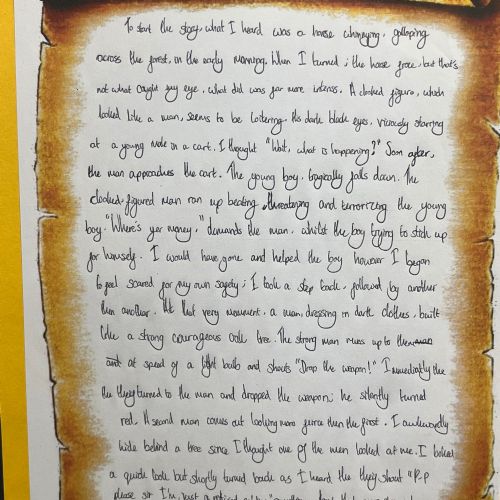 To start the story, what I heard was a horse whinnying, galloping
across the forest, in the early morning. When I turned; the horse froze, but that's
not what caught my eye, what did was far more intense. A cloaked figure, which
looked like a man, seems to be loitering. His dark black eyes, viciously staring
at a young male in a cart. I thought "Wait, what is happening?" Soon after,
the man approaches the cart. The young boy, tragically falls down. The
cloaked figured man ran up beating, threatening and terrorizing the young
boy. "Where's yer money," demands the man, whilst the boy trying to stick up
for himself. I would have gone and helped the boy however I began
to feel scared for my own safety; I took a step back, followed by another
then another. At that very movement, a man, dressing in dark clothes, built
like a strong courageous oak tree. The strong man runs up to
at speed of a light bulb and shouts "Drop the weapon!" Immediatly the
the turned to the man and dropped the weapon; he silently turned
red. A second man comes out looking more fierce then the first. I awkwardly
hide behind a tree since I thought one of the men looked at me. I
a quick look but shortly turned back as I heard the shout "P-p
please sir I'm, just a